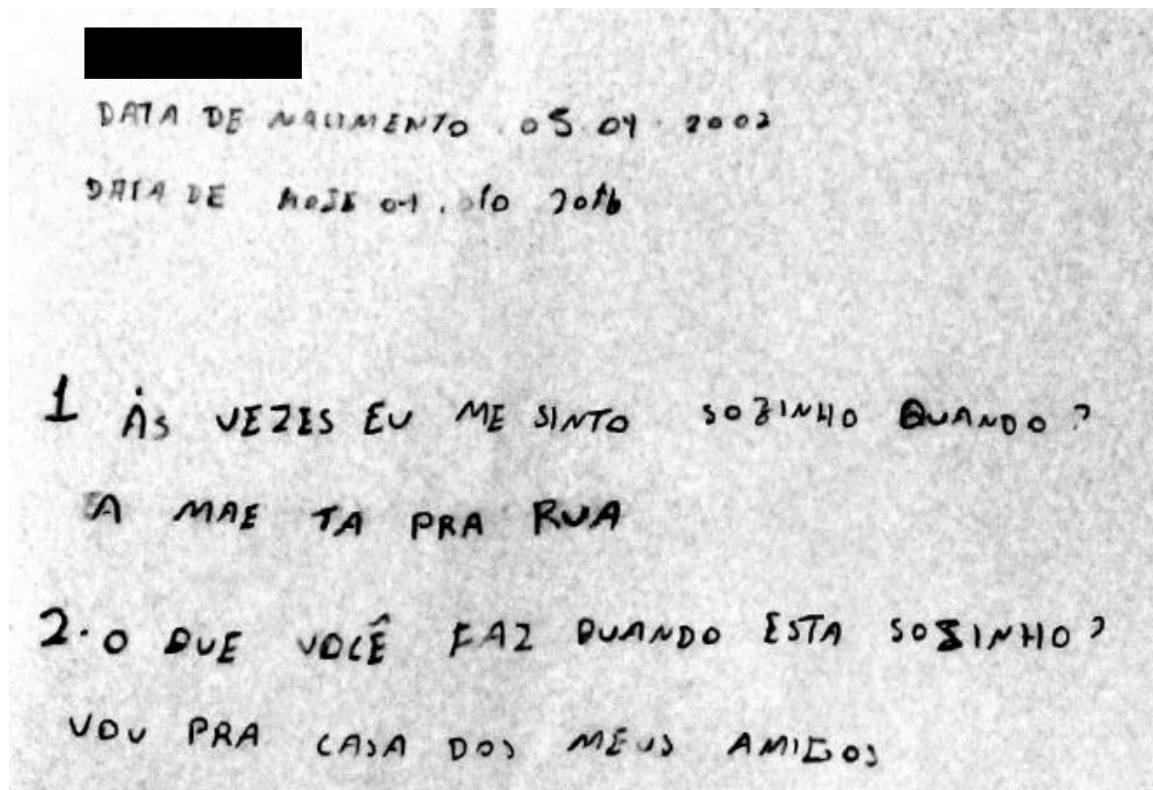 DATA DE NACIMENTO 05 04 2002
DATA DE HOJE 01. 10 2016
1 ÀS VEZES EU ME SINTO SOZINHO QUANDO?
A MAE TA PRA RUA
2. O QUE VOCÊ FAZ QUANDO ESTA SOZINHO?
VOU PRA CASA DOS MEUS AMIGOS